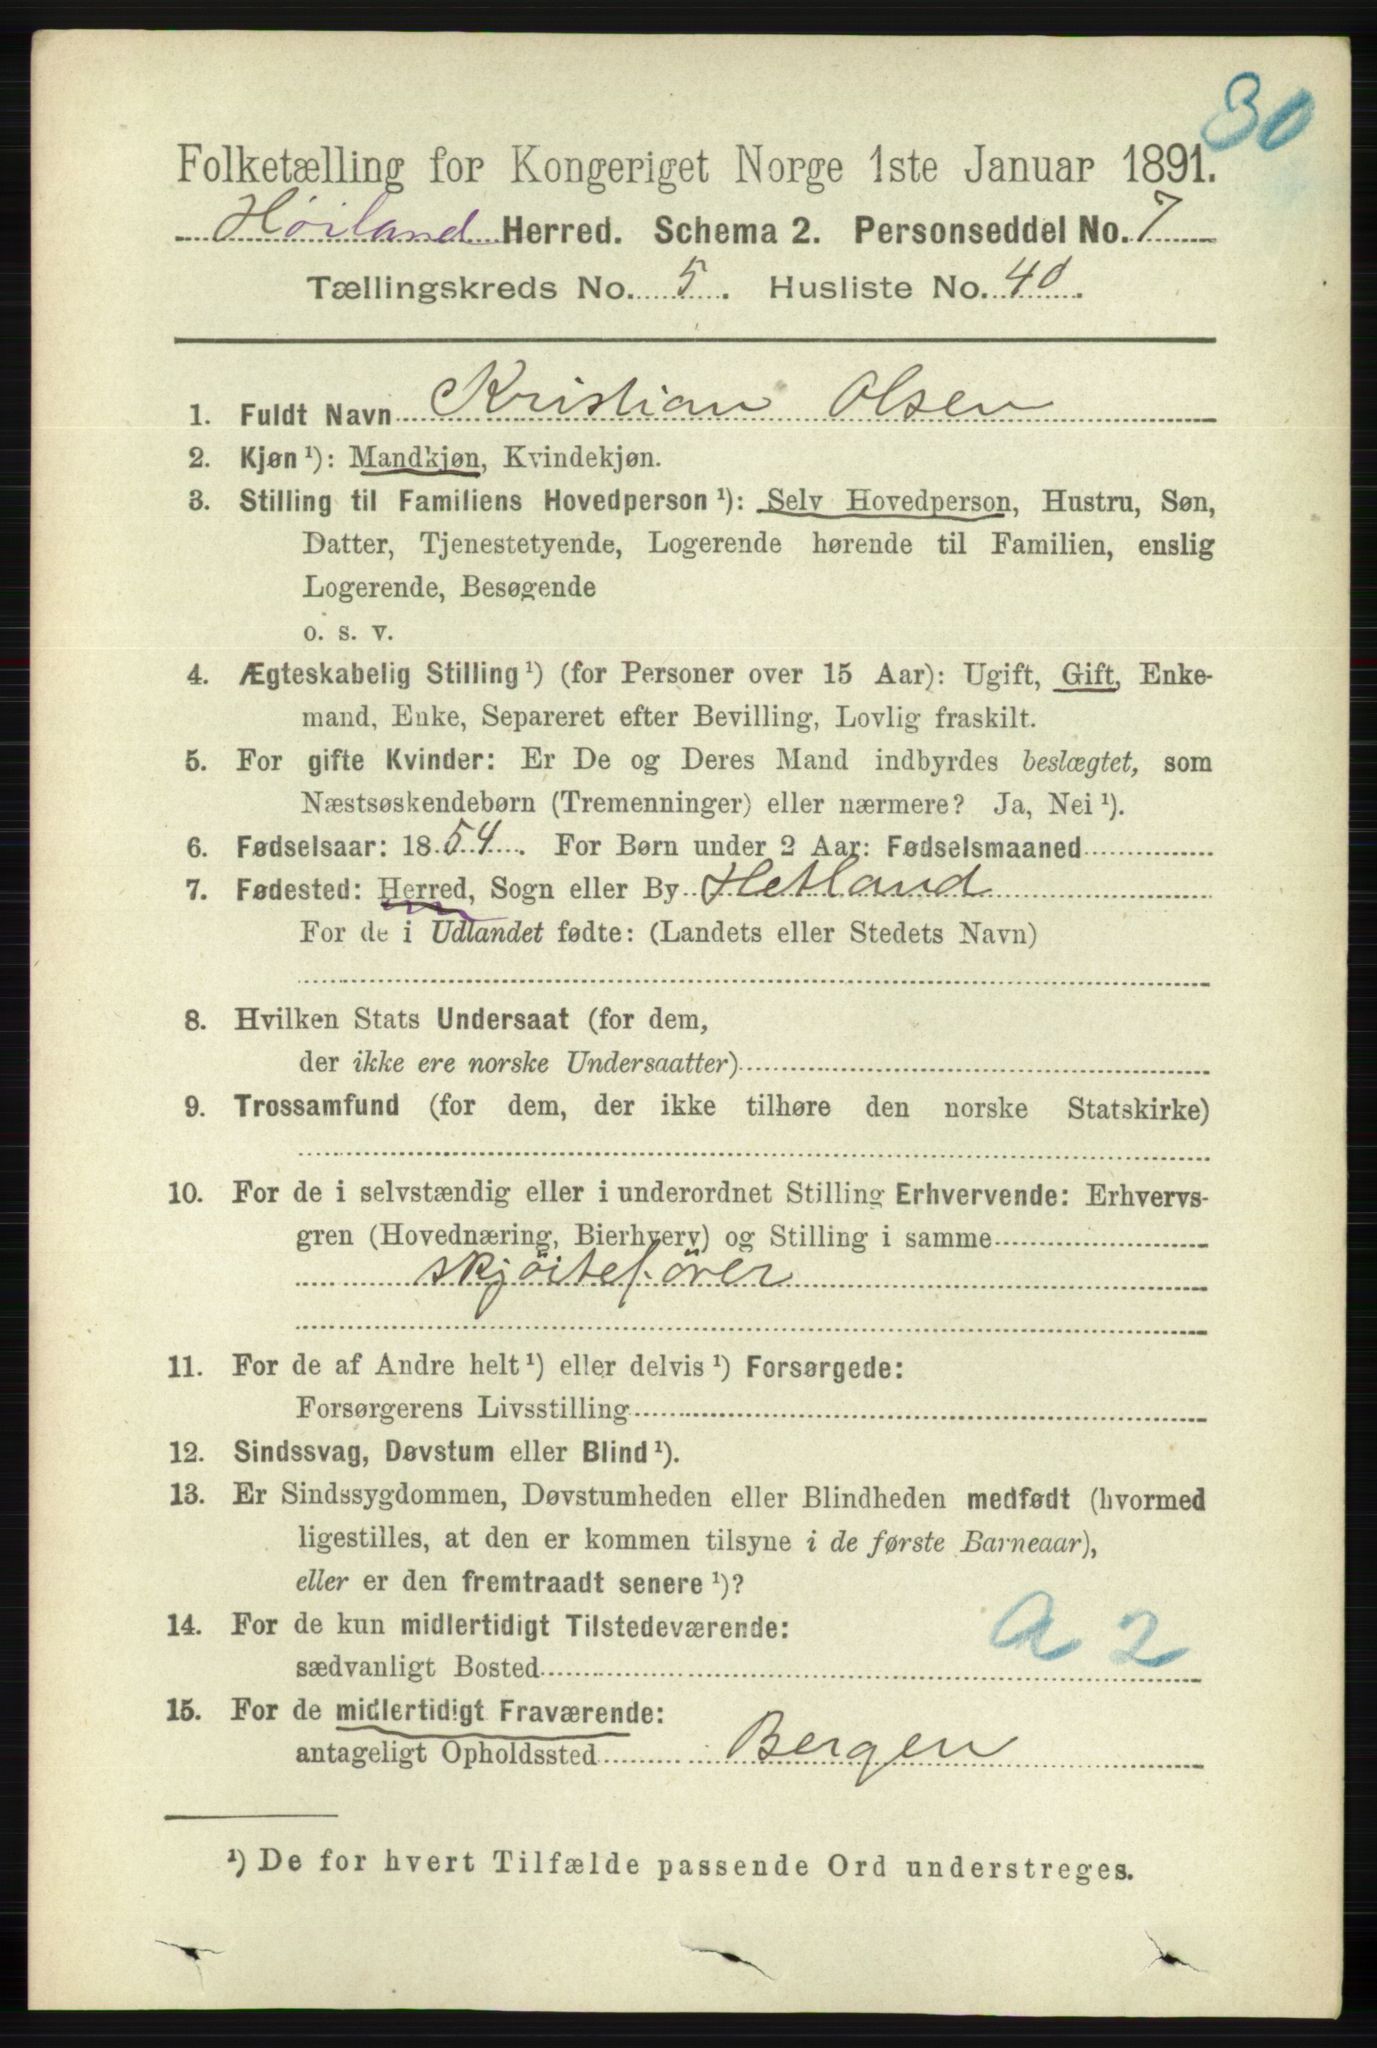 30
Folketælling for Kongeriget Norge 1ste Januar 1891.
Höiland Herred. Schema 2. Personseddel No. 7
Tællingskreds No. 5. Husliste No. 40.
1. Fuldt Navn Kristian Olsen
2. Kjøn ¹): Mandkjøn, Kvindekjøn.
3. Stilling til Familiens Hovedperson ¹): Selv Hovedperson, Hustru, Søn,
Datter, Tjenestetyende, Logerende hørende til Familien, enslig
Logerende, Besøgende
o. s. v.
4. Ægteskabelig Stilling ¹) (for Personer over 15 Aar): Ugift, Gift, Enke-
mand, Enke, Separeret efter Bevilling, Lovlig fraskilt.
5. For gifte Kvinder: Er De og Deres Mand indbyrdes beslægtet, som
Næstsøskendebørn (Tremenninger) eller nærmere? Ja, Nei ¹).
6. Fødselsaar: 1854. For Børn under 2 Aar: Fødselsmaaned
7. Fødested: Herred, Sogn eller By Hetland
For de i Udlandet fødte: (Landets eller Stedets Navn)
8. Hvilken Stats Undersaat (for dem,
der ikke ere norske Undersaatter)
9. Trossamfund (for dem, der ikke tilhøre den norske Statskirke)
10. For de i selvstændig eller i underordnet Stilling Erhvervende: Erhvervs-
gren (Hovednæring, Bierhverv) og Stilling i samme
skjöiteförer
11. For de af Andre helt ¹) eller delvis ¹) Forsørgede:
Forsørgerens Livsstilling
12. Sindssvag, Døvstum eller Blind ¹).
13. Er Sindssygdommen, Døvstumheden eller Blindheden medfødt (hvormed
ligestilles, at den er kommen tilsyne i de første Barneaar),
eller er den fremtraadt senere ¹)?
14. For de kun midlertidigt Tilstedeværende:
sædvanligt Bosted
a 2
15. For de midlertidigt Fraværende:
antageligt Opholdssted Bergen
¹) De for hvert Tilfælde passende Ord understreges.